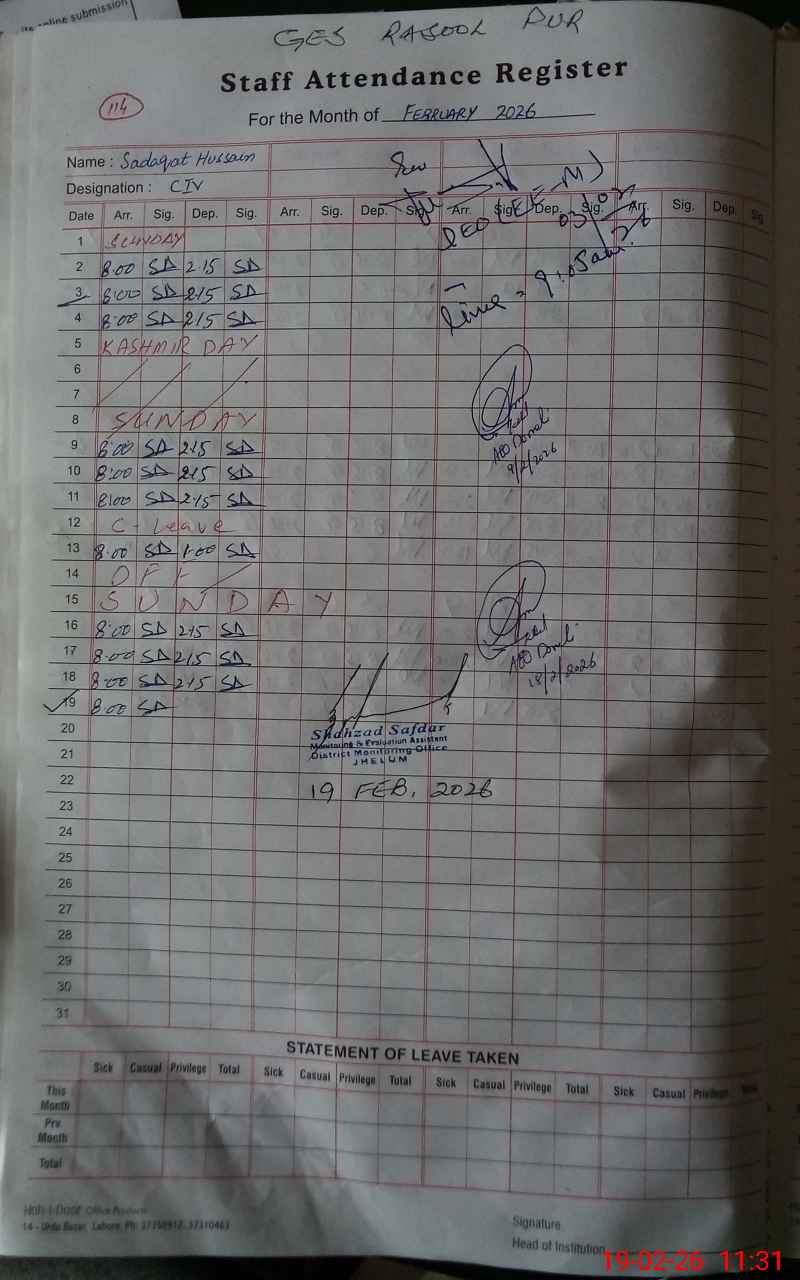 online submission
GES RASOOL PUR
Staff Attendance Register
114
For the Month of FEBRUARY 2026
Name : Sadaqat Hussain
Designation : CIV
Date Arr. Sig. Dep. Sig. Arr. Sig. Dep. Sig. Arr. Sig. Dep. Sig. Arr. Sig. Dep. Sig
DEO (EE-M)
03/02/26
time = 9:05am.
1 SUNDAY
2 8:00 SD 2:15 SD
3 8:00 SD 2:15 SD
4 8:00 SD 2:15 SD
5 KASHMIR DAY
6
7
8 SUNDAY
9 8:00 SD 2:15 SD
10 8:00 SD 2:15 SD
11 8:00 SD 2:15 SD
AEO Domeli
9/2/2026
12 C-Leave
13 8:00 SD 1:00 SD
14 OFF
15 SUNDAY
16 8:00 SD 2:15 SD
17 8:00 SD 2:15 SD
18 8:00 SD 2:15 SD
AEO Domeli
18/2/2026
19 8:00 SD
20
Shahzad Safdar
Monitoring & Evaluation Assistant
District Monitoring Office
JHELUM
21
22
19 FEB, 2026
23
24
25
26
27
28
29
30
31
STATEMENT OF LEAVE TAKEN
Sick Casual Privilege Total Sick Casual Privilege Total Sick Casual Privilege Total Sick Casual Privilege
This Month
Prv. Month
Total
Office Products
14 - Urdu Bazar, Lahore, Ph: 37358917, 37310463
Signature
Head of Institution
19-02-26 11:31